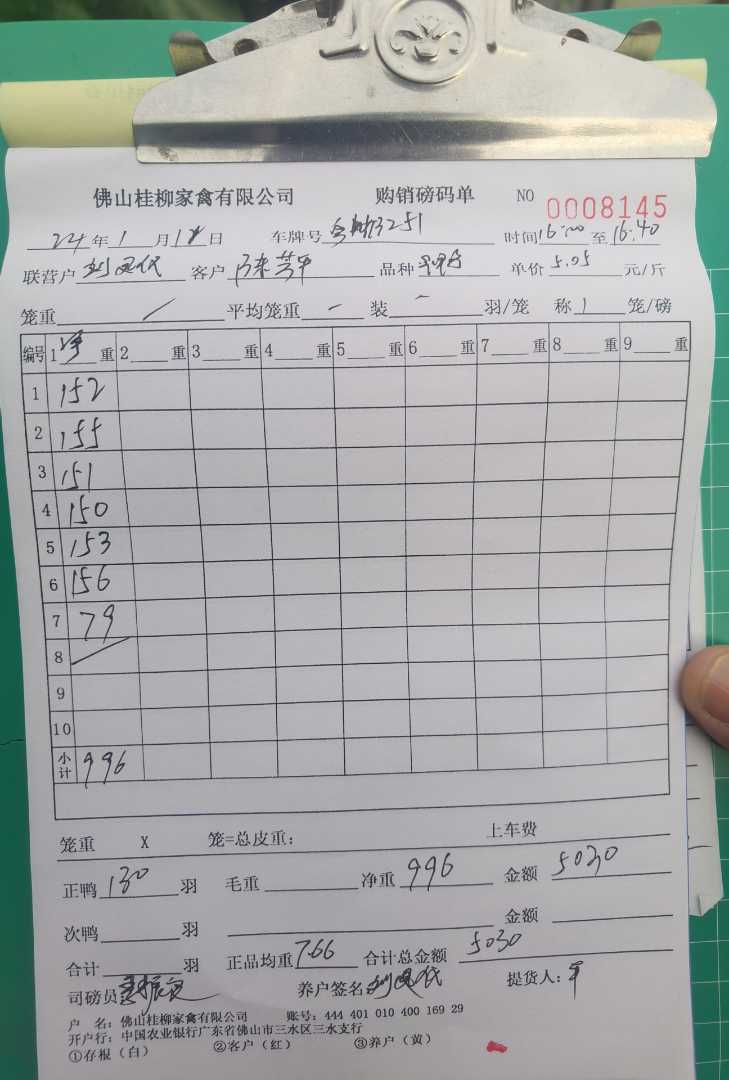 佛山桂柳家禽有限公司 购销磅码单 NO 0008145
24年1月12日 车牌号 3251 时间16:00至16:40
联营户 客户 陈芳平 品种 单价 5.05 元/斤
笼重 / 平均笼重 — 装 — 羽/笼 称 1 笼/磅
编号 1 净 重 2 重 3 重 4 重 5 重 6 重 7 重 8 重 9 重
1 152
2 155
3 151
4 150
5 153
6 156
7 79
8 /
9
10
小计 996
笼重 X 笼=总皮重： 上车费
正鸭 130 羽 毛重 净重 996 金额 5030
次鸭 羽 金额
合计 羽 正品均重 7.66 合计总金额 5030
司磅员 养户签名 提货人：
户 名：佛山桂柳家禽有限公司 账号：444 401 010 400 169 29
开户行：中国农业银行广东省佛山市三水区三水支行
①存根（白） ②客户（红） ③养户（黄）